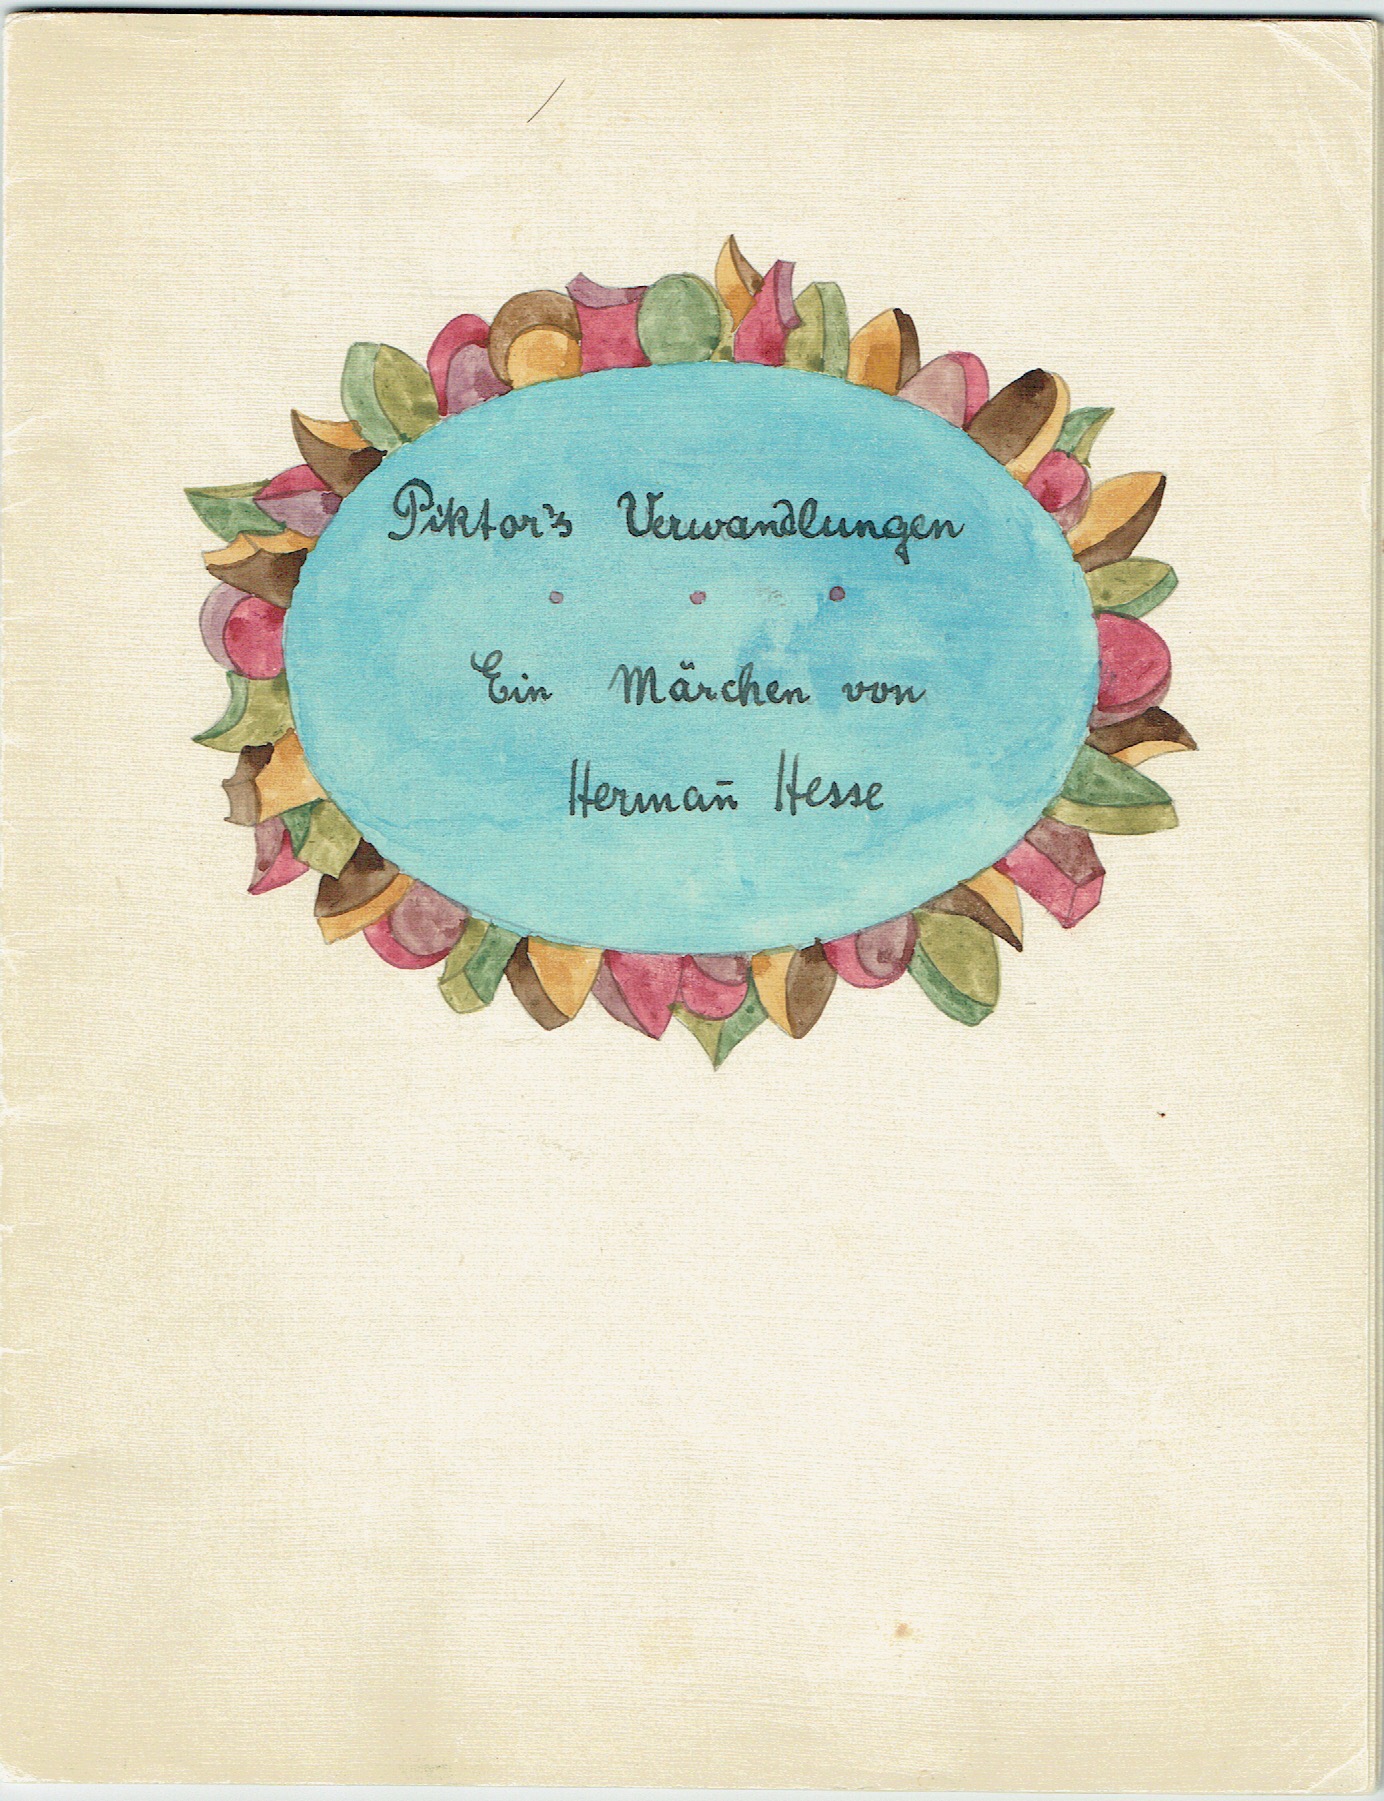 Piktor's Verwandlungen
Ein Märchen von
Hermañ Hesse